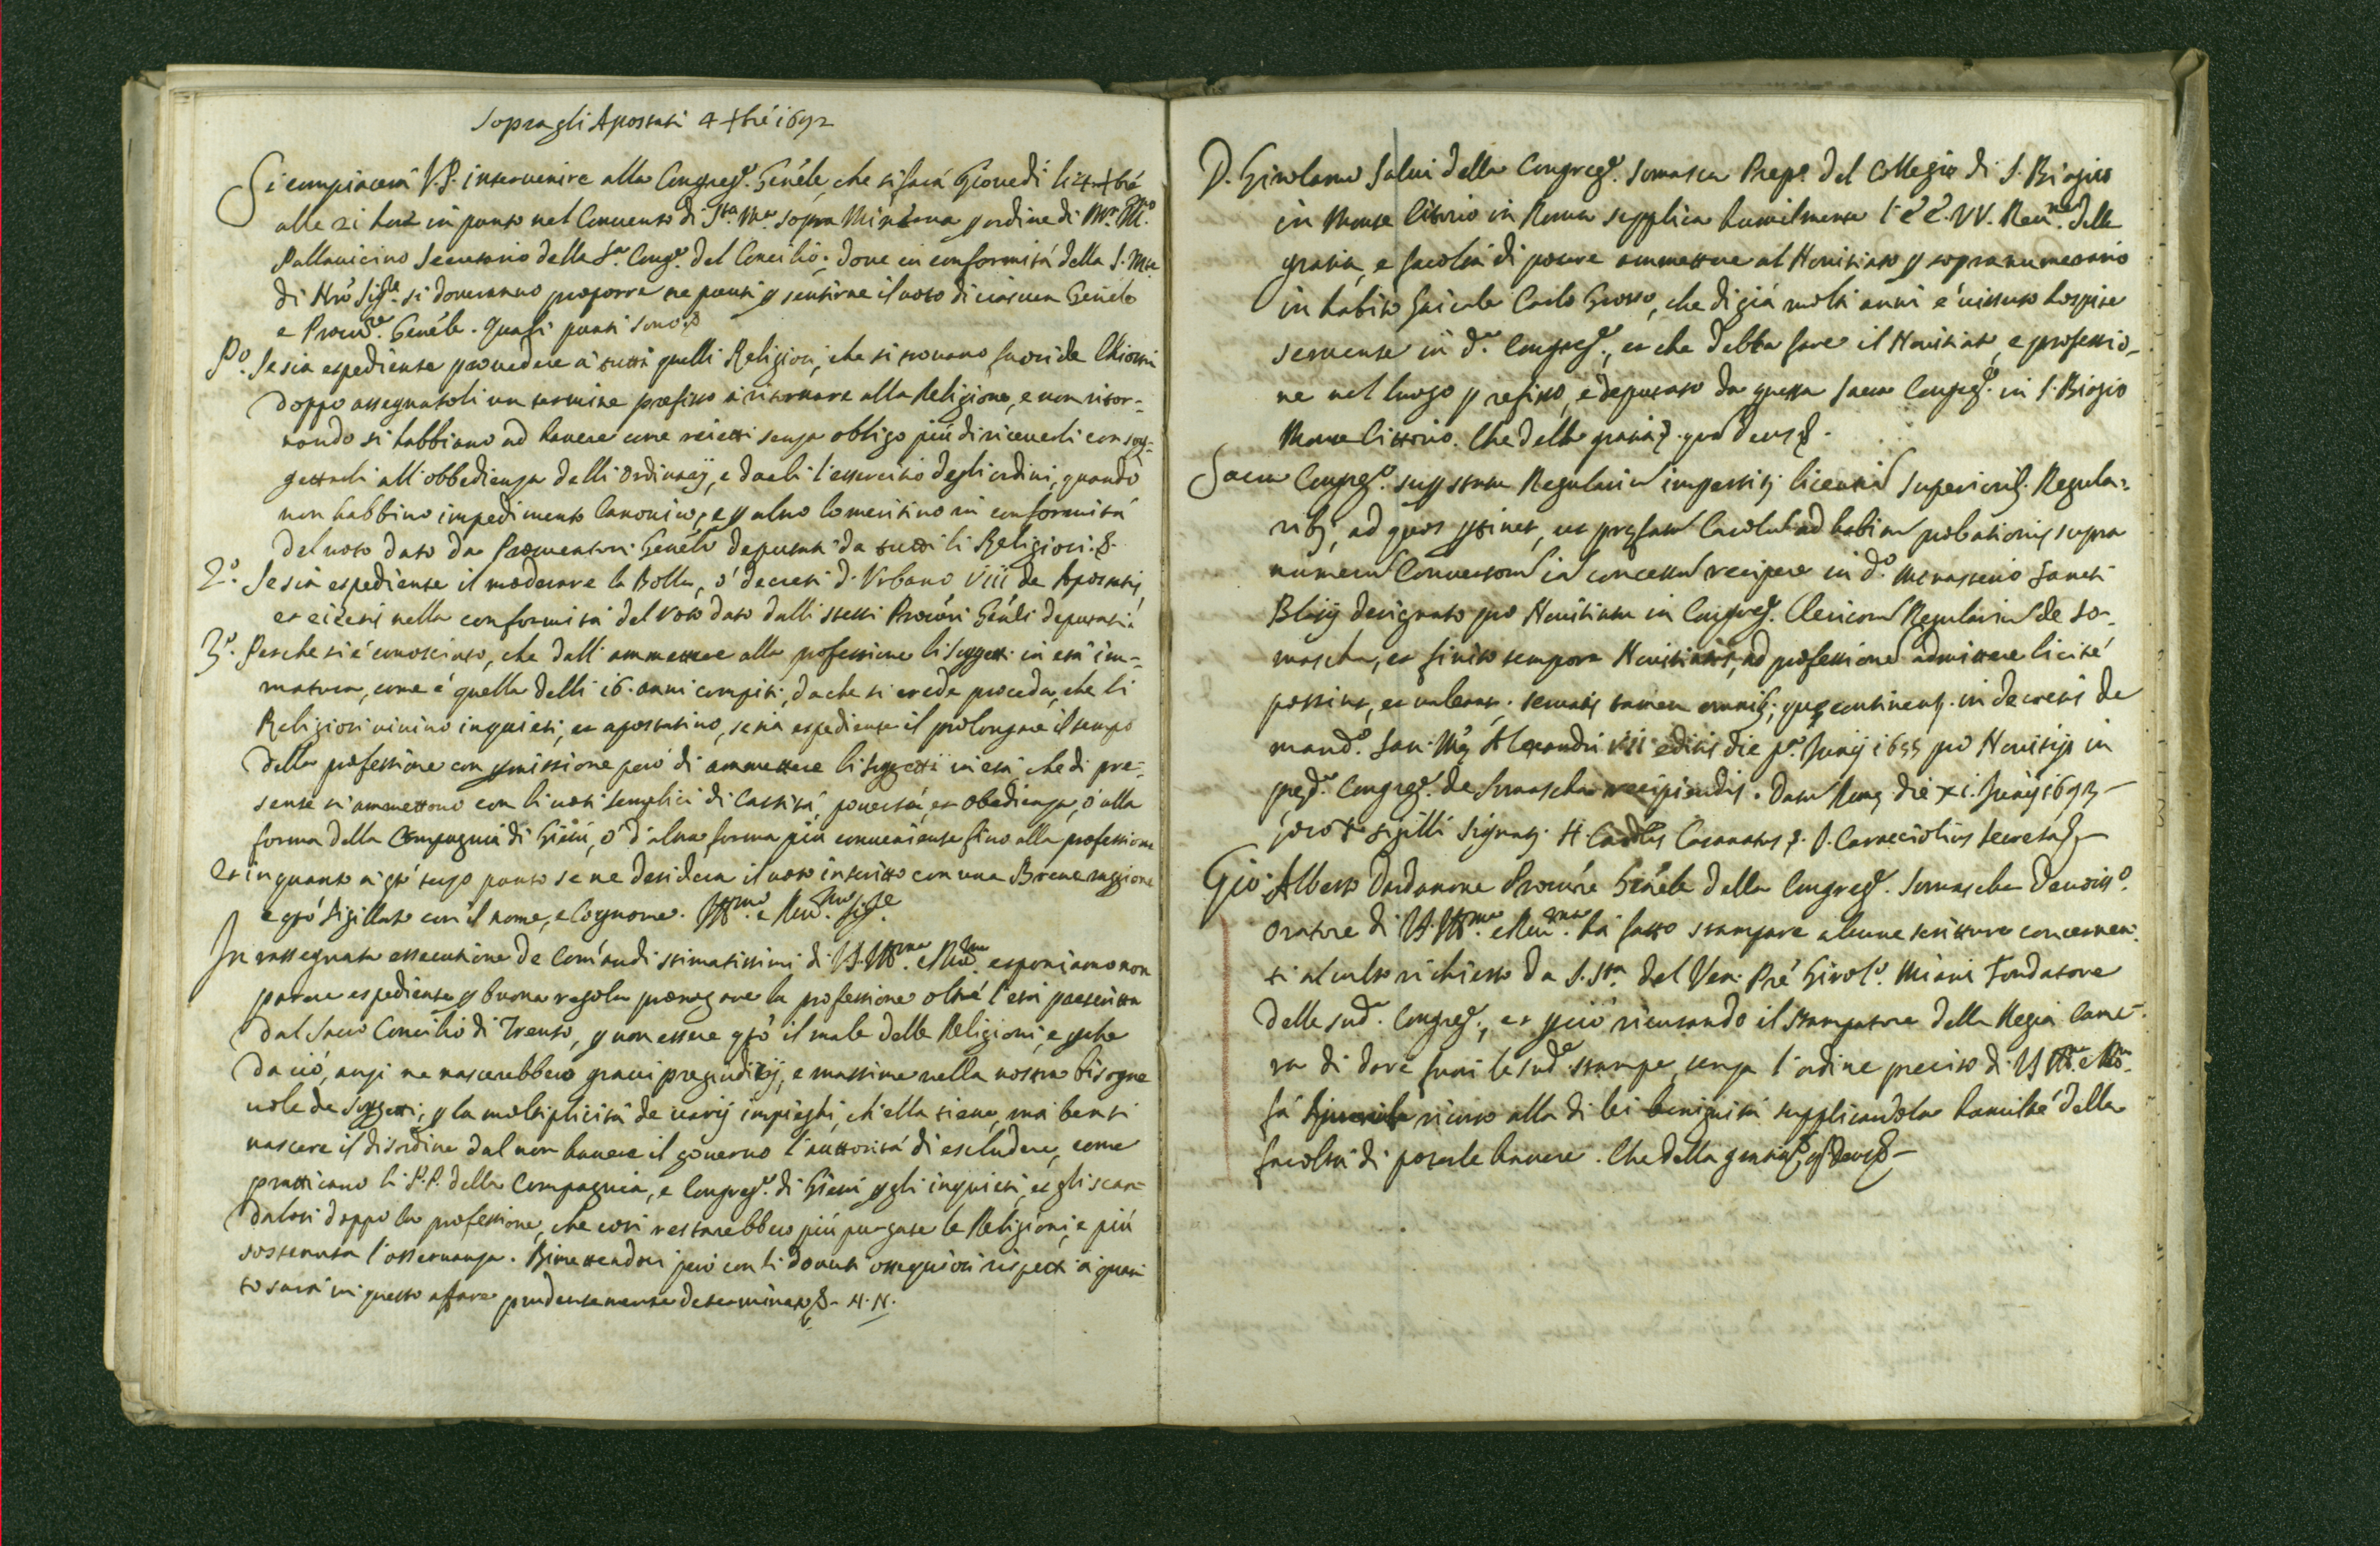 Sopra gli Apostati 4 Xbré 1692
Si compiacerà V.P. intervenire alla Congreg.e Genéle, che si farà Giovedi li 4 Xbré
alle 21 hore in punto nel Convento di S.ta M.a sopra Minerva p ordine di M.r Ill.mo
Pallavicino Secretario della S.a Cong.e del Concilio; dove in conformità della S. Mte
di Nró Sig.re si doveranno proporre tre punti p sentirne il voto di ciascun Genéle
e Procur.re Genéle. Questi punti sono &
P.o Se sia espediente provedere à tutti quelli Religiosi, che si trovano fuori de Chiostri
doppo assegnatoli un termine prefisso à ritornare alla Religione, e non ritor-
nando si habbiano ad havere come reietti senza obligo più di riceverli con sog-
gettarli all'obbedienza delli Ordinarij, e darli l'essercitio degli ordini, quando
non habbino impedimento Canonico, e p altro lo meritino in conformità
del voto dato da Procuratori Genéli deputati da tutti li Religiosi. &.
2.o Se sia espediente il moderare la Bolla, ò decreti d' Urbano VIII de Apostatis,
et eiectis nella conformità del voto dato dalli stessi Procúri Genéli deputati.
3.o Perche si è conosciuto, che dall'ammettere alla professione li suggetti in età im-
matura, come è quella delli 16. anni compiti, da che si crede proceda, che li
Religiosi vivino inquieti, et apostatino, se sia espediente il prolongare il tempo
della professione con pmissione però di ammettere li suggetti in età, che di pre-
sente si ammettono con li voti semplici di Castità, povertà, et obedienza, ò alla
forma della Compagnia di Giesù, ò d'altra forma più conveniente sino alla professione
Et in quanto à qsto terzo punto se ne desidera il voto in scritto con una Breve raggione
e qsto sigillato con il nome, e Cognome. Ill.mo e Rev.mo Sig.re
In rassegnata essecutione de Comándi stimatissimi di V.S. Ill.ma e Rev.ma esponiamo non
parere espediente p buona regola prorogare la professione oltré l'età prescritta
dal Sacro Concilio di Trento, p non essere qsto il male delle Religioni, e pche
da ciò, anzi ne nascerebbero gravi pregiudicij, e massime nella nostra bisogne
vole de suggetti, p la moltiplicità de varij impieghi, ch'ella tiene, mà bensi
nascere il disordine dal non havere il governo l'auttorità di escludere, come
pratticano li P.P. della Compagnia, e Congreg.e di Giesù p gli inquieti, et gli scan-
dalosi doppo la professione, che cosi restarebbero più purgate le Religioni, e più
sostenuta l'osservanza. Rimettendosi però con li dovuti ossequiosi rispetti à quan-
to sarà in questo affare prudentemente determinato &. N.N.
D. Girolamo Salvi della Congreg.e Somasca Prep.o del Collegio di S. Biagio
in Monte Citorio in Roma supplica humilmente l'É É. VV. Rev.me della
gratia, e facoltà di potere ammettere al Novitiato p sopranumerario
in habito Laicale Carlo Grosso, che di già molti anni è vissuto hospite
servente in d.a Congreg.e, et che debba fare il Novitiato, e professio-
ne nel luogo prefisso, e deputato da questa Sacra Congreg.e in S. Biagio
Monte Cittorio. Che della gratia &. quam deus &.
Sacra Congreg.o sup statu Regularium impertitis licentiam Superiorib. Regula-
ribs, ad quos ptinet, ut prefatum Carolum ad habitum probationis supra
numerum Conversorum iam concessum recipere in d.o Monasterio Sancti
Blasij designato pro Novitiatu in Congreg.e Clericorum Regularium de So-
mascha, et finito tempore Novitiatus, ad professionem admittere licité
possint, et valeant. servatis tamen omnibs, que continents. in decretis de
mand.o San. Mé Alexandri VII editis die p.a Junij 1655 pro Novitijs in
pred.a Congreg.e de Somascha recipiendis. Datum Rome die XI. Junij 1693 —
loco + sigilli Signats. H Card.lis Casanatus &. J. Caracciolius Secret.s &—
Gio: Alberto Dardanone Procúre Genéle della Congreg.e Somascha Devotiss.o
Oratore di V.S. Ill.ma e Rev.ma hà fatto stampare alcune scritture concernen-
ti al culto richiesto da S. S.tà del Ven. Pré Girol.o Miani Fondatore
della sud.a Congreg.e, et pciò ricusando il stampatore della Regia Came-
ra di dare fuori le sud.e stampe senza l'ordine preciso di V.S. Ill.ma e R.ma
fà ricorso alla di lei benignità supplicandola humilmé della
facoltà di poterle havere. Che della gratia &. qs Deus &—